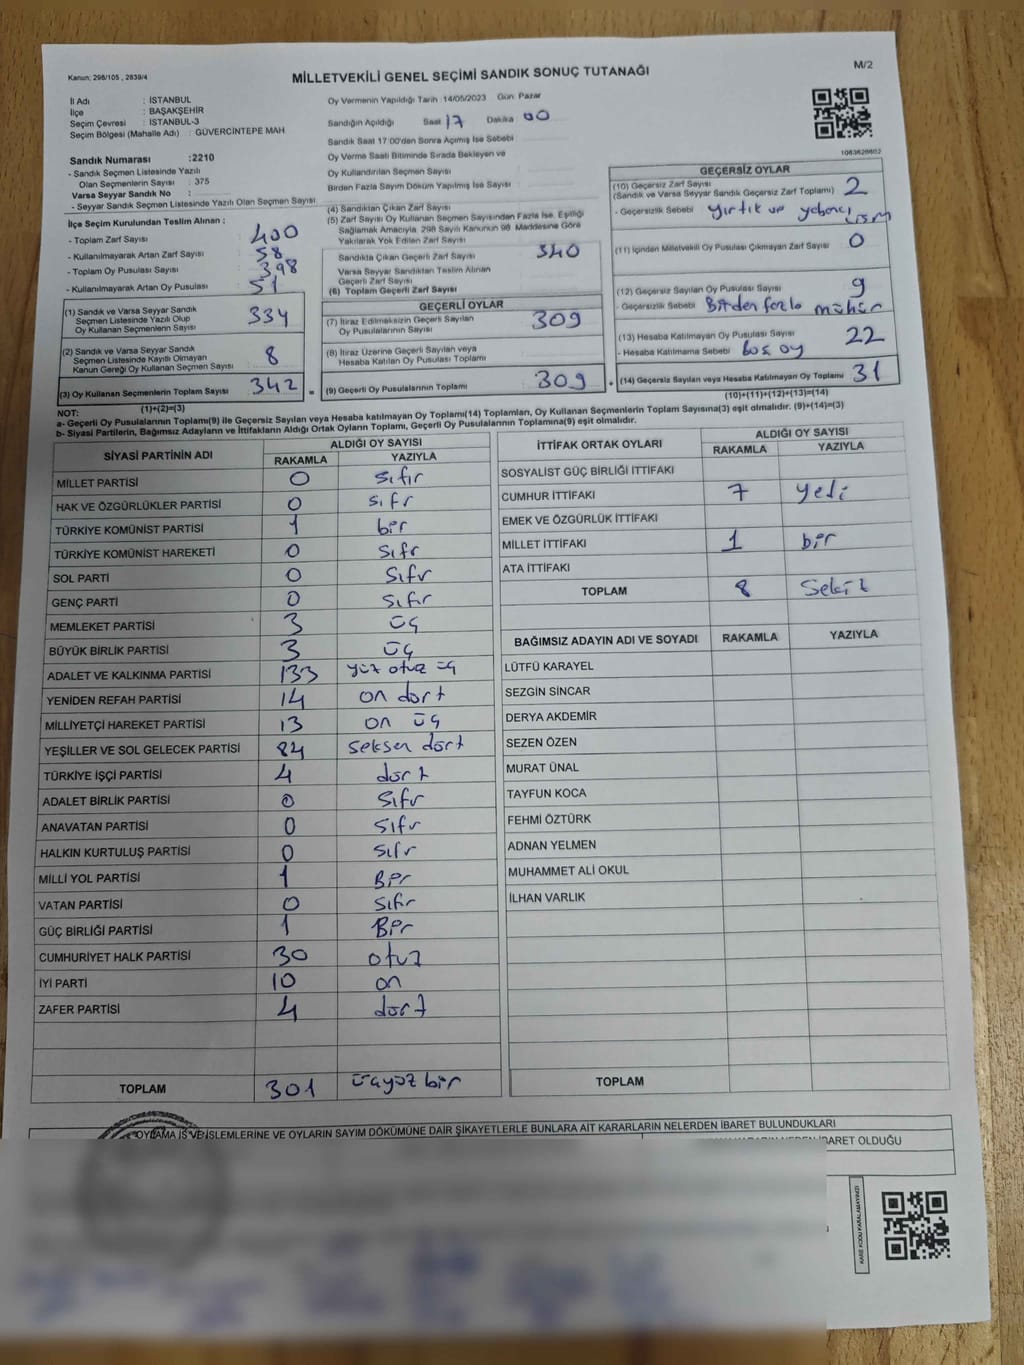 Kanun: 298/105 , 2839/4
M/2
MİLLETVEKİLİ GENEL SEÇİMİ SANDIK SONUÇ TUTANAĞI
İl Adı : İSTANBUL
İlçe : BAŞAKŞEHİR
Seçim Çevresi : İSTANBUL-3
Seçim Bölgesi (Mahalle Adı) : GÜVERCİNTEPE MAH
Sandık Numarası :2210
- Sandık Seçmen Listesinde Yazılı
Olan Seçmenlerin Sayısı : 375
Varsa Seyyar Sandık No :
- Seyyar Sandık Seçmen Listesinde Yazılı Olan Seçmen Sayısı
Oy Vermenin Yapıldığı Tarih :14/05/2023 Gün Pazar
Sandığın Açıldığı Saat 17 Dakika 00
Sandık Saat 17:00'den Sonra Açılmış İse Sebebi
Oy Verme Saati Bitiminde Sırada Bekleyen ve
Oy Kullandırılan Seçmen Sayısı
Birden Fazla Sayım Döküm Yapılmış İse Sayısı
1083628602
İlçe Seçim Kurulundan Teslim Alınan :
- Toplam Zarf Sayısı : 400
- Kullanılmayarak Artan Zarf Sayısı : 58
- Toplam Oy Pusulası Sayısı : 398
- Kullanılmayarak Artan Oy Pusulası : 51
(1) Sandık ve Varsa Seyyar Sandık
Seçmen Listesinde Yazılı Olup
Oy Kullanan Seçmenlerin Sayısı 334
(2) Sandık ve Varsa Seyyar Sandık
Seçmen Listesinde Kayıtlı Olmayan
Kanun Gereği Oy Kullanan Seçmen Sayısı 8
(3) Oy Kullanan Seçmenlerin Toplam Sayısı 342 =
(1)+(2)=(3)
(4) Sandıktan Çıkan Zarf Sayısı
(5) Zarf Sayısı Oy Kullanan Seçmen Sayısından Fazla İse, Eşitliği
Sağlamak Amacıyla, 298 Sayılı Kanunun 98. Maddesine Göre
Yakılarak Yok Edilen Zarf Sayısı
Sandıkta Çıkan Geçerli Zarf Sayısı 340
Varsa Seyyar Sandıktan Teslim Alınan
Geçerli Zarf Sayısı
(6) Toplam Geçerli Zarf Sayısı
GEÇERLİ OYLAR
(7) İtiraz Edilmeksizin Geçerli Sayılan
Oy Pusulalarının Sayısı 309
(8) İtiraz Üzerine Geçerli Sayılan veya
Hesaba Katılan Oy Pusulası Toplamı
(9) Geçerli Oy Pusulalarının Toplamı 309 +
GEÇERSİZ OYLAR
(10) Geçersiz Zarf Sayısı
(Sandık ve Varsa Seyyar Sandık Geçersiz Zarf Toplamı) 2
- Geçersizlik Sebebi yırtık ve yabancı isim
(11) İçinden Milletvekili Oy Pusulası Çıkmayan Zarf Sayısı 0
(12) Geçersiz Sayılan Oy Pusulası Sayısı 9
- Geçersizlik Sebebi Birden fazla mühür
(13) Hesaba Katılmayan Oy Pusulası Sayısı 22
- Hesaba Katılmama Sebebi boş oy
(14) Geçersiz Sayılan veya Hesaba Katılmayan Oy Toplamı 31
(10)+(11)+(12)+(13)=(14)
NOT:
a- Geçerli Oy Pusulalarının Toplamı(9) ile Geçersiz Sayılan veya Hesaba katılmayan Oy Toplamı(14) Toplamları, Oy Kullanan Seçmenlerin Toplam Sayısına(3) eşit olmalıdır. (9)+(14)=(3)
b- Siyasi Partilerin, Bağımsız Adayların ve İttifakların Aldığı Ortak Oyların Toplamı, Geçerli Oy Pusulalarının Toplamına(9) eşit olmalıdır.
SİYASİ PARTİNİN ADI ALDIĞI OY SAYISI
RAKAMLA YAZIYLA
MİLLET PARTİSİ 0 sıfır
HAK VE ÖZGÜRLÜKLER PARTİSİ 0 sıfr
TÜRKİYE KOMÜNİST PARTİSİ 1 bir
TÜRKİYE KOMÜNİST HAREKETİ 0 sıfr
SOL PARTİ 0 sıfır
GENÇ PARTİ 0 sıfır
MEMLEKET PARTİSİ 3 üç
BÜYÜK BİRLİK PARTİSİ 3 üç
ADALET VE KALKINMA PARTİSİ 133 yüz otuz üç
YENİDEN REFAH PARTİSİ 14 on dört
MİLLİYETÇİ HAREKET PARTİSİ 13 on üç
YEŞİLLER VE SOL GELECEK PARTİSİ 84 seksen dört
TÜRKİYE İŞÇİ PARTİSİ 4 dört
ADALET BİRLİK PARTİSİ 0 sıfır
ANAVATAN PARTİSİ 0 sıfır
HALKIN KURTULUŞ PARTİSİ 0 sıfr
MİLLİ YOL PARTİSİ 1 Bir
VATAN PARTİSİ 0 sıfır
GÜÇ BİRLİĞİ PARTİSİ 1 Bir
CUMHURİYET HALK PARTİSİ 30 otuz
İYİ PARTİ 10 on
ZAFER PARTİSİ 4 dört
TOPLAM 301 üçyüz bir
İTTİFAK ORTAK OYLARI ALDIĞI OY SAYISI
RAKAMLA YAZIYLA
SOSYALİST GÜÇ BİRLİĞİ İTTİFAKI
CUMHUR İTTİFAKI 7 yedi
EMEK VE ÖZGÜRLÜK İTTİFAKI
MİLLET İTTİFAKI 1 bir
ATA İTTİFAKI
TOPLAM 8 Sekiz
BAĞIMSIZ ADAYIN ADI VE SOYADI RAKAMLA YAZIYLA
LÜTFÜ KARAYEL
SEZGİN SİNCAR
DERYA AKDEMİR
SEZEN ÖZEN
MURAT ÜNAL
TAYFUN KOCA
FEHMİ ÖZTÜRK
ADNAN YELMEN
MUHAMMET ALİ OKUL
İLHAN VARLIK
TOPLAM
OYLAMA İŞ VE İŞLEMLERİNE VE OYLARIN SAYIM DÖKÜMÜNE DAİR ŞİKAYETLERLE BUNLARA AİT KARARLARIN NELERDEN İBARET BULUNDUKLARI
İBARET OLDUĞU
KARE KODU KARALAMAYINIZ!